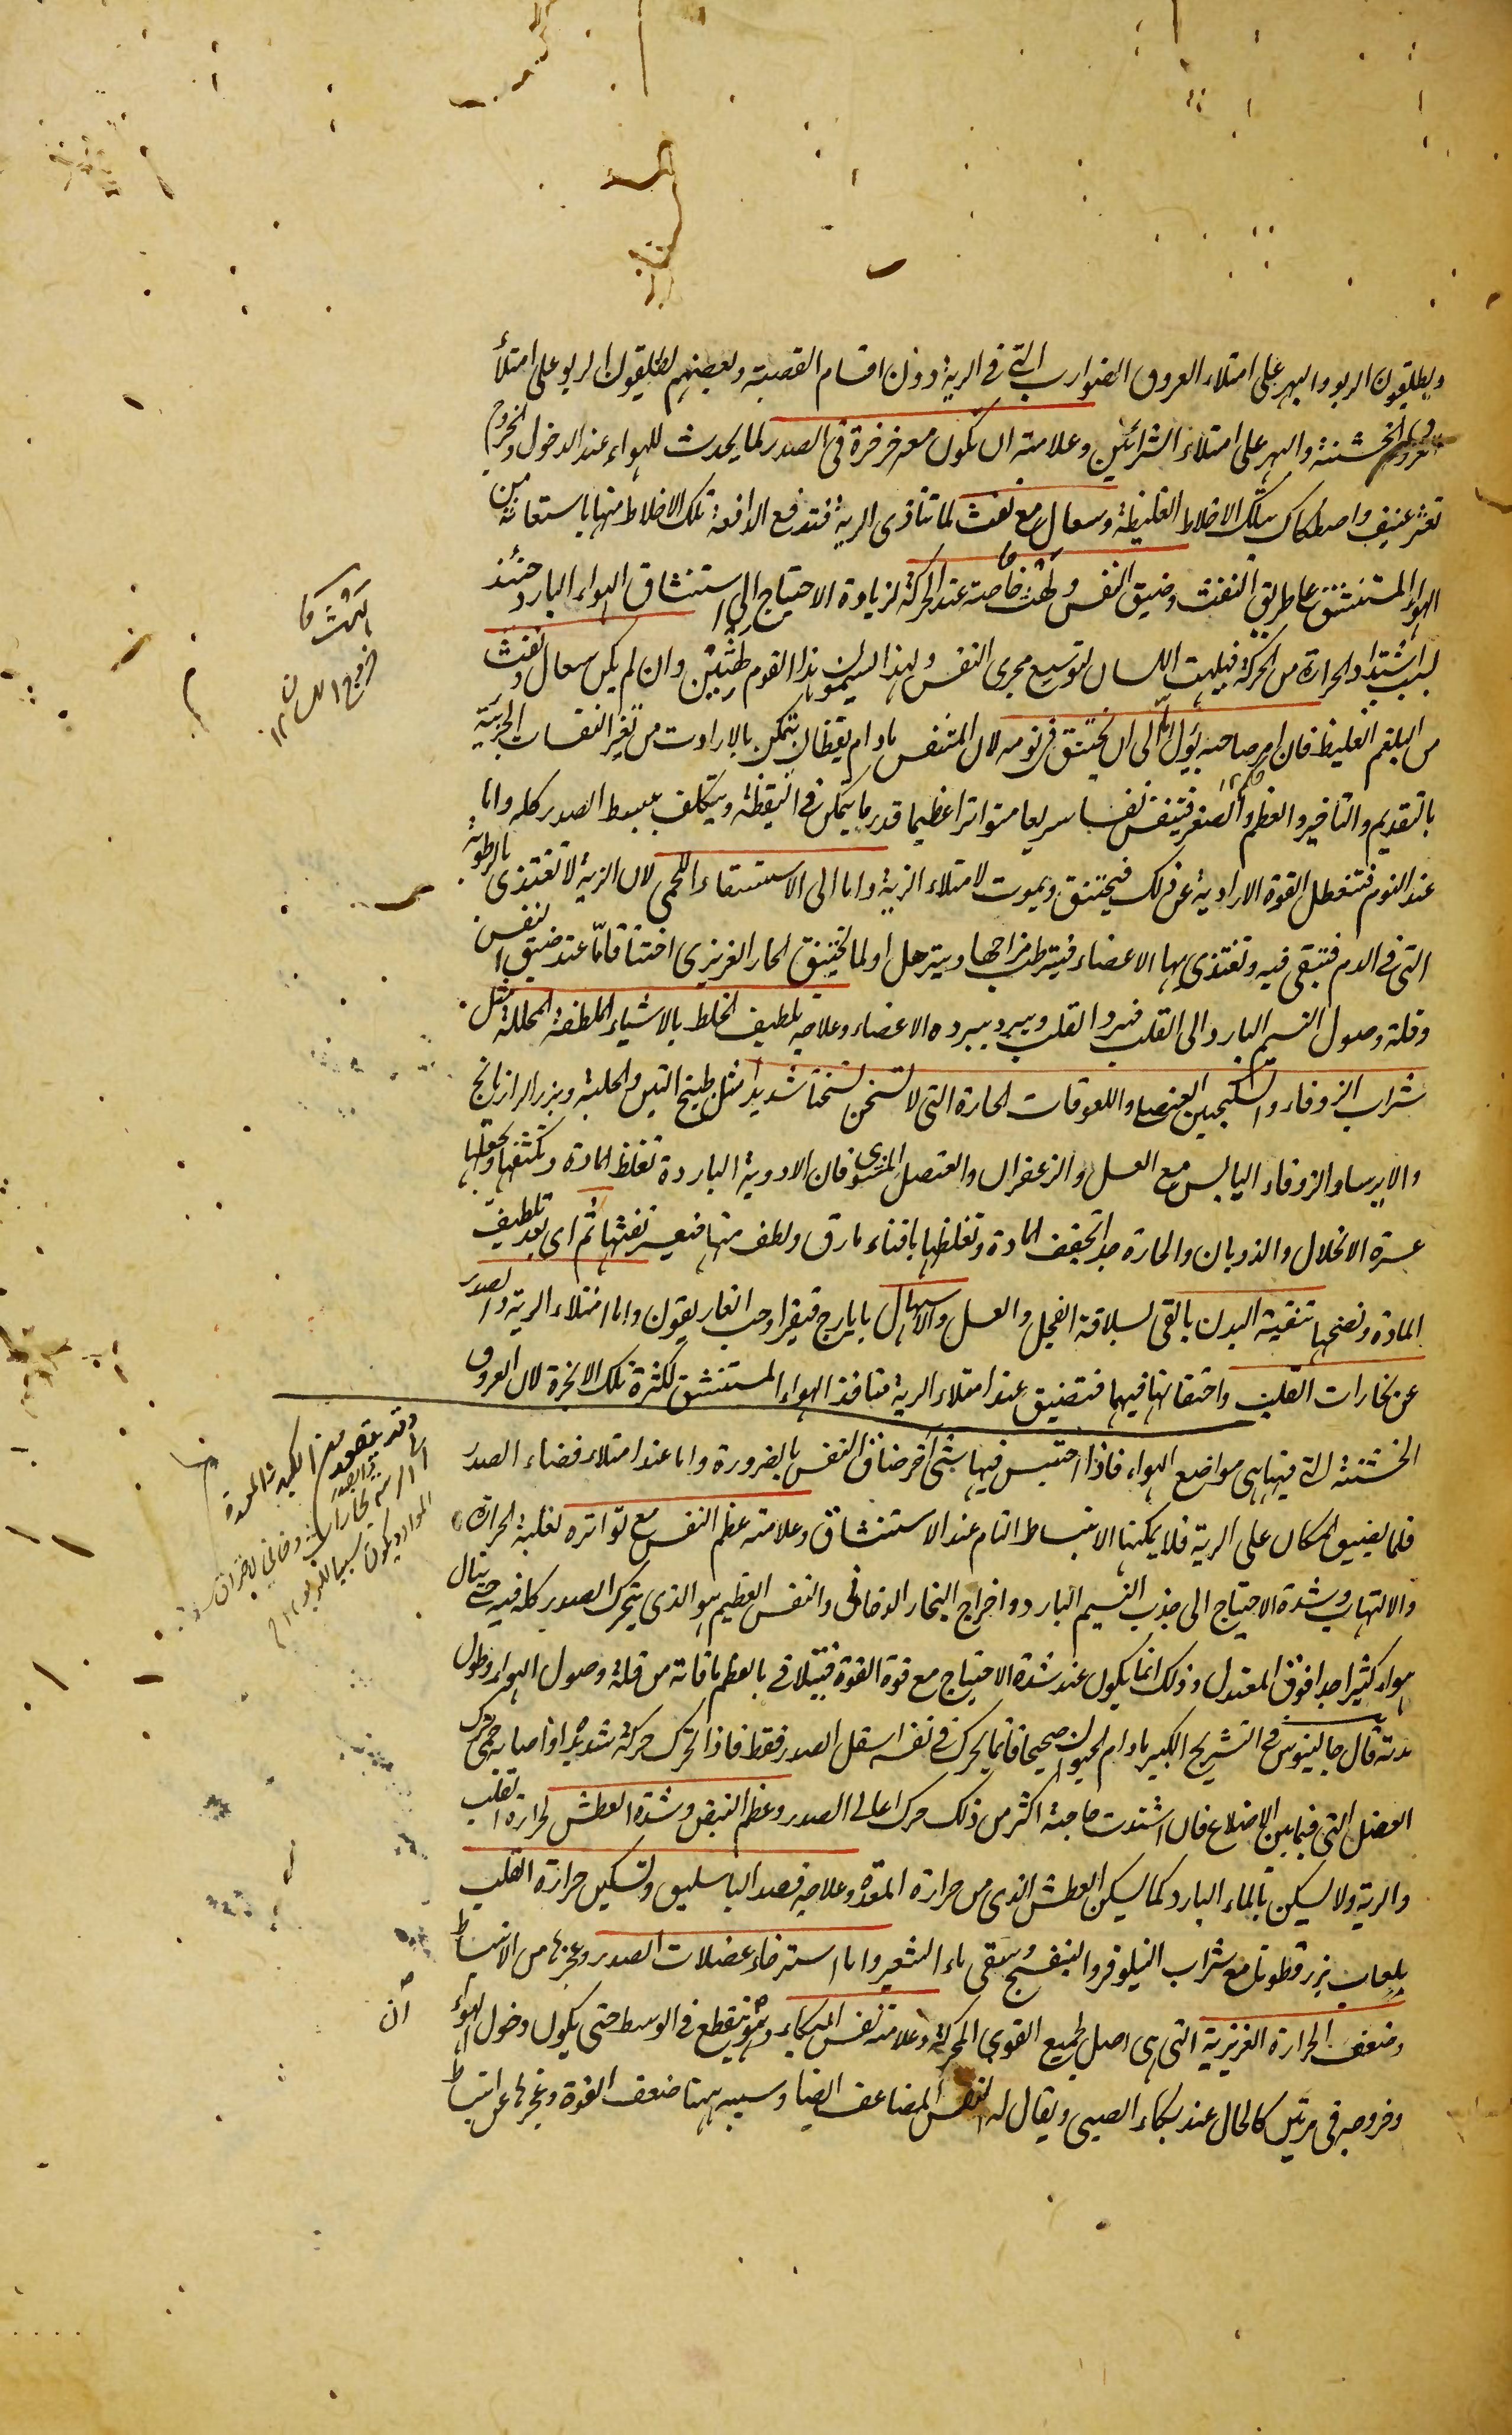 ويطلقون الربو والبهر على امتلاء العروق الضوارب التى فى الرية دون اقسام القصبة وبعضهم يطلقون الربو على امتلأ
العروق الخشنة والبهر على امتلاء الشرائين وعلامته ان تكون معه خرخرة فى الصدر لما يحدث للهواء عند الدخول والخروج
تعثر عنيف واصطكاك بتلك الاخلاط الغليظة وسعال مع نفث لما تتاذى الرية فتدفع الدافعة تلك الاخلاط منها باستعانة من
الهواء المستنشق على طريق النفث وضيق النفس ولهث خاصة عند الحركة لزيادة الاحتياج الى استنشاق الهواء البارد حينئذ
لسبب اشتداد الحرارة من الحركة فيلهث اللسان لتوسيع مجرى النفس ولهذا يسمون هذا القوم وان لم يكن سعال ونفث
من البلغم الغليظ فان امر صاحبه يؤل اما الى ان يختنق فى نومه لان المتنفس مادام يقظان يتمكن بالارادت من تغير النفسات الجزئية
بالتقديم والتاخير والعظم والصغر فيتنفس نفسا سريعا متواترا عظيما قدر ما يتمكن فى اليقظة ويتكلف ببسط الصدر كله واما
عند النوم فتتعطل القوة الارادية عن ذلك فيختنق ويموت لامتلاء الرية واما الى الاستسقاء اللحمى لان الرية لا تغتذى بالرطوبة
التى فى الدم فتبقى فيه وتغتذى بها الاعضاء فيترطب مزاجها ويترهل او لما يختنق الحار الغريزى اختناقا ما عند ضيق النفس
وقلة وصول النسيم البارد الى القلب فيبرد القلب ويبرد ببرده الاعضاء وعلاجه تلطيف الخلط بالاشياء الملطفة المحللة مثل
شراب الزوفاء والسكنجبين العنصلى واللعوقات الحارة التى لا تسخن تسخنا شديدا مثل طبيخ التين والحلبة وبزر الرازيانج
والايرسا والزوفاء اليابس مع العسل والزعفران والعنصل المشوى فان الادوية الباردة تغلظ المادة وتكثفها وتجعلها
عسرة الانحلال والذوبان والحارة جدا تجفف المادة وتغلظها بافناء مارق ولطف منها فيعسر نفثها ثم اى بعد تلطيف
المادة ونضجها تنقية البدن بالقى بسلاقة الفجل والعسل والاسهال بايارج فيقرا وحب الغاريقون واما امتلاء الرية والصدر
عن بخارات القلب واحتقانها فيهما فتضيق عند امتلاء الرية منافذ الهواء المستنشق لكثرة تلك الابخرة لان العروق
الخشنة التى فيها هى مواضع الهواء فاذا احتبس فيها شئ آخر ضاق النفس بالضرورة واما عند امتلاء فضاء الصدر
فلما يضيق المكان على الرية فلا يمكنها الانبساط التام عند الاستنشاق وعلامته عظم النفس مع تواتره لغلبة الحرارة
والالتهاب وشدة الاحتياج الى جذب النسيم البارد واخراج البخار الدخانى والنفس العظيم هو الذى يتحرك الصدر كله فيه حتى ينال
هواء كثيرا جدا فوق المعتدل وذلك انما يكون عند شدة الاحتياج مع قوة القوة فيتلافى بالعظم ما فاته من قلة وصول الهواء وطول
مدته قال جالينوس فى التشريح الكبير مادام الحيوان صحيحا فانما يحرك فى تنفسه اسفل الصدر فقط فاذا تحرك حركة شديدة او اصابه حمى حرك
العضل التى فيما بين الاضلاع فان اشتدت حاجته اكثر من ذلك حرك اعالى الصدر وعظم النبض وشدة العطش لحرارة القلب
والرية ولا يسكن بالماء البارد كما يسكن العطش الذى من حرارة المعدة وعلاجه فصد الباسليق وتسكين حرارة القلب
بلعاب بزر قطونا مع شراب النيلوفر والبنفسج وسقى ماء الشعير واما استرخاء عضلات الصدر وعجزها من الانبساط
وضعف الحرارة الغريزية التى هى اصل لجميع القوى المحركة وعلامته نفس البكاء وهو ينقطع فى الوسط حتى يكون دخول الهواء
وخروجه فى مرتين كالحال عند بكاء الصبى ويقال له النفس المضاعف ايضا وسببه ههنا ضعف القوة وعجزها عن انبساط
وقد يتصعد من الكبد والمعدة
آن